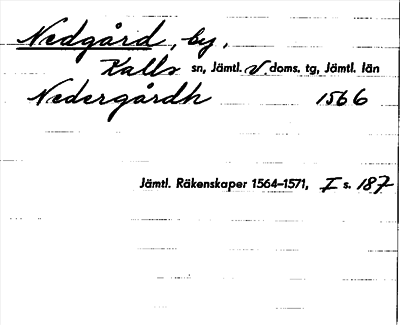 Nedgård, by,
Kalls sn, Jämtl. V. doms. tg, Jämtl. län
Nedergårdh 1566
Jämtl. Räkenskaper 1564–1571, I s. 187